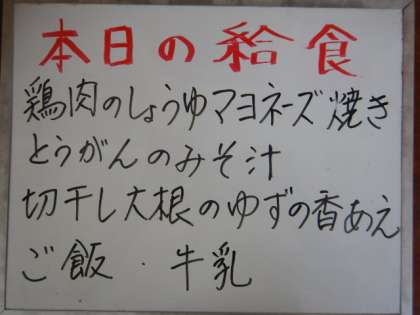 本日の給食
鶏肉のしょうゆマヨネーズ焼き
とうがんのみそ汁
切干し大根のゆずの香あえ
ご飯・牛乳